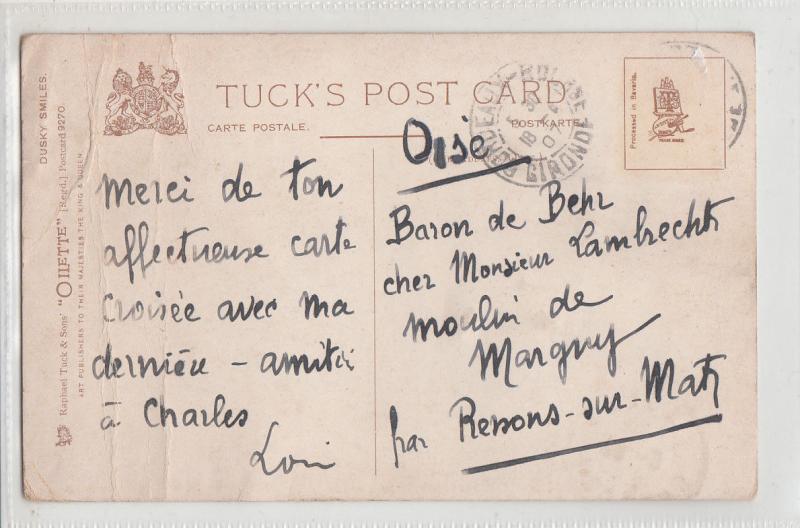 DUSKY SMILES.
Raphael Tuck & Sons' "OILETTE" [Regd.] Postcard 9270.
ART PUBLISHERS TO THEIR MAJESTIES THE KING & QUEEN.
TUCK'S POST CARD
CARTE POSTALE.
POSTKARTE.
Processed in Bavaria.
GIRONDE
18
Oise
Merci de ton
affectueuse carte
croisée avec ma
dernière - amitié
à Charles
Baron de Behr
cher Monsieur Lambrechts
moulin de
Margny
par Ressons-sur-Matz